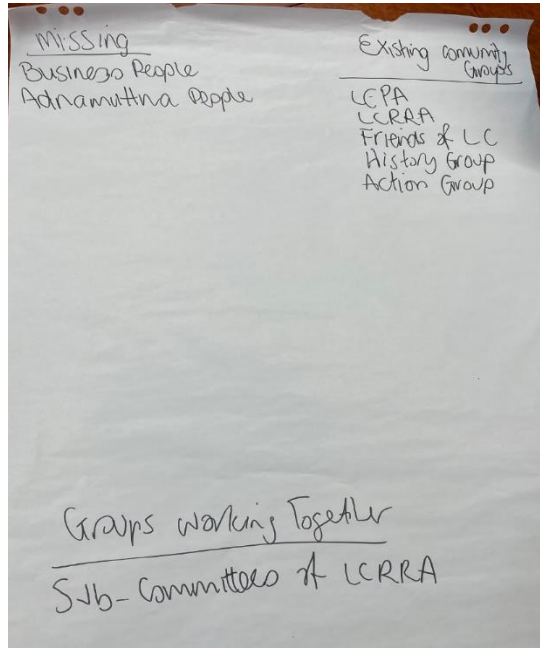 Missing
Business People
Adnamuttna People
Existing Comunity
Groups
LCPA
LCRRA
Friends of LC
History Group
Action Group
Groups working Together
Sub-Committees of LCRRA